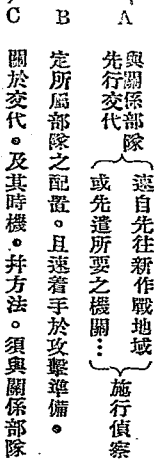 A 與關係部隊先行交代{速自先往新作戰地域 或先遣所要之機關…}施行偵察
B 定所屬部隊之配置。且速着手於攻擊準備。
C 關於交代。及其時機。幷方法。須與關係部隊